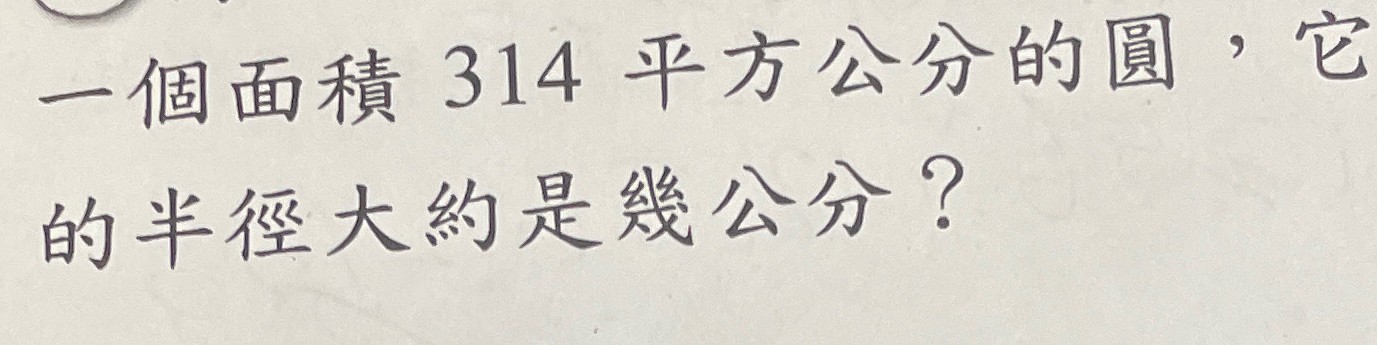 一個面積 314 平方公分的圓，它
的半徑大約是幾公分？